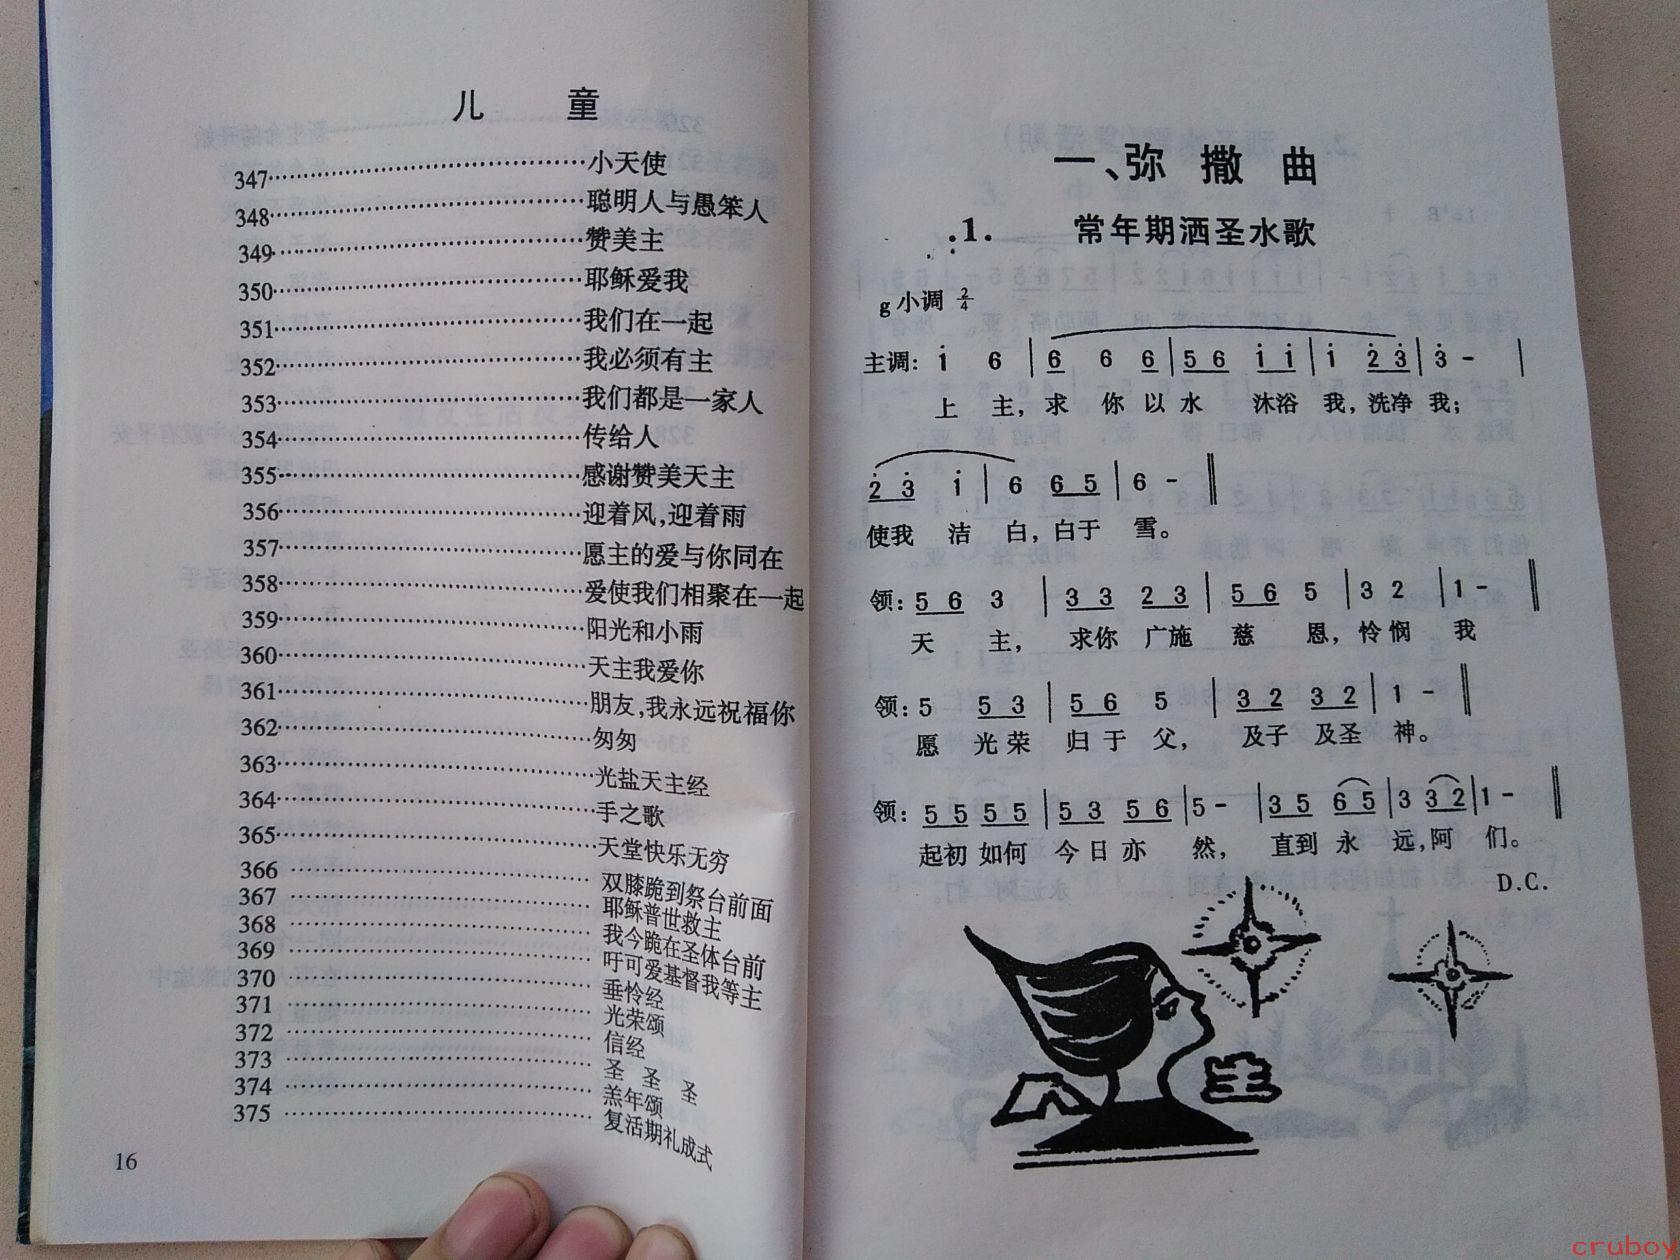 儿 童
347……小天使
348……聪明人与愚笨人
349……赞美主
350……耶稣爱我
351……我们在一起
352……我必须有主
353……我们都是一家人
354……传给人
355……感谢赞美天主
356……迎着风,迎着雨
357……愿主的爱与你同在
358……爱使我们相聚在一起
359……阳光和小雨
360……天主我爱你
361……朋友,我永远祝福你
362……匆匆
363……光盐天主经
364……手之歌
365……天堂快乐无穷
366……双膝跪到祭台前面
367……耶稣普世救主
368……我今跪在圣体台前
369……吁可爱基督我等主
370……垂怜经
371……光荣颂
372……信经
373……圣 圣 圣
374……羔年颂
375……复活期礼成式
16
一、弥 撒 曲
1. 常年期洒圣水歌
g小调 2/4
主调: i 6 | 6 6 6 | 5 6 i i | i 2 3 | 3 - |
上 主, 求 你 以 水 沐浴 我, 洗净 我;
2 3 i | 6 6 5 | 6 - ‖
使我 洁 白, 白于 雪。
领: 5 6 3 | 3 3 2 3 | 5 6 5 | 3 2 | 1 - ‖
天 主, 求你 广施 慈 恩, 怜悯 我
领: 5 5 3 | 5 6 5 | 3 2 3 2 | 1 - ‖
愿 光荣 归于 父, 及子 及圣 神。
领: 5 5 5 5 | 5 3 5 6 | 5 - | 3 5 6 5 | 3 3 2 | 1 - ‖
起初 如何 今日 亦 然, 直到 永 远, 阿 们。
D.C.
主
cruboy